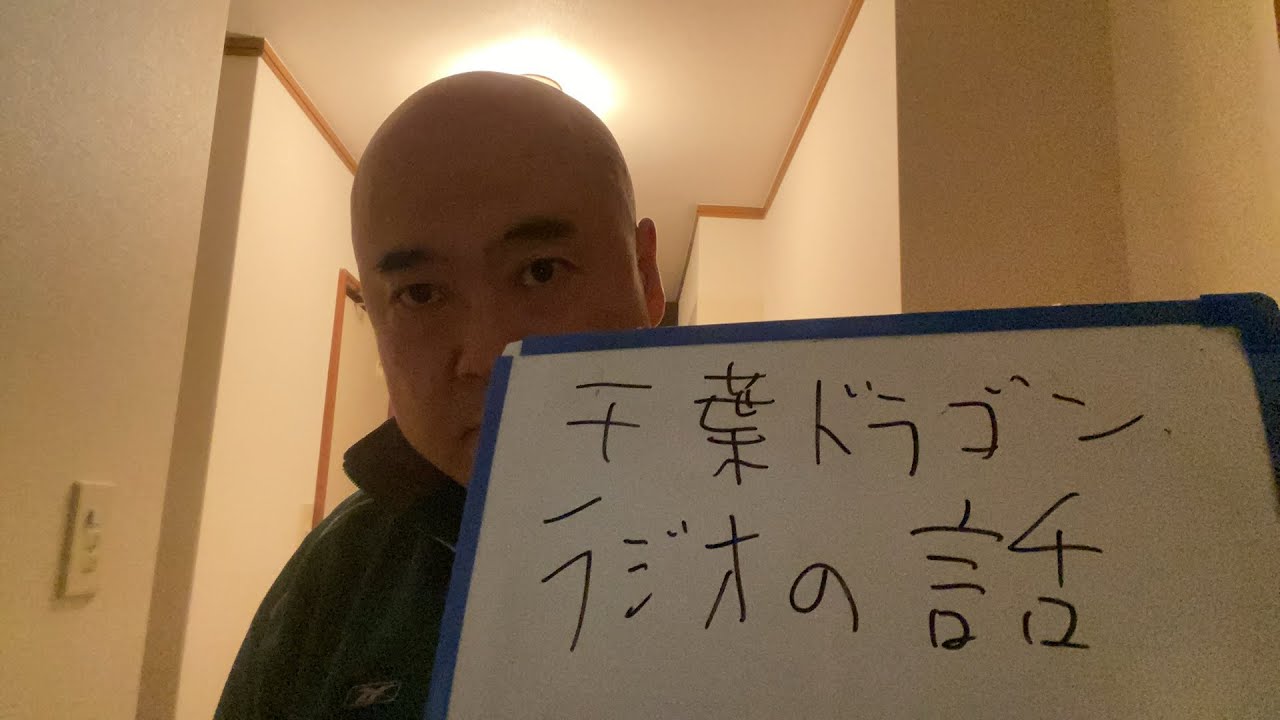 千葉ドラゴン
ラジオの話